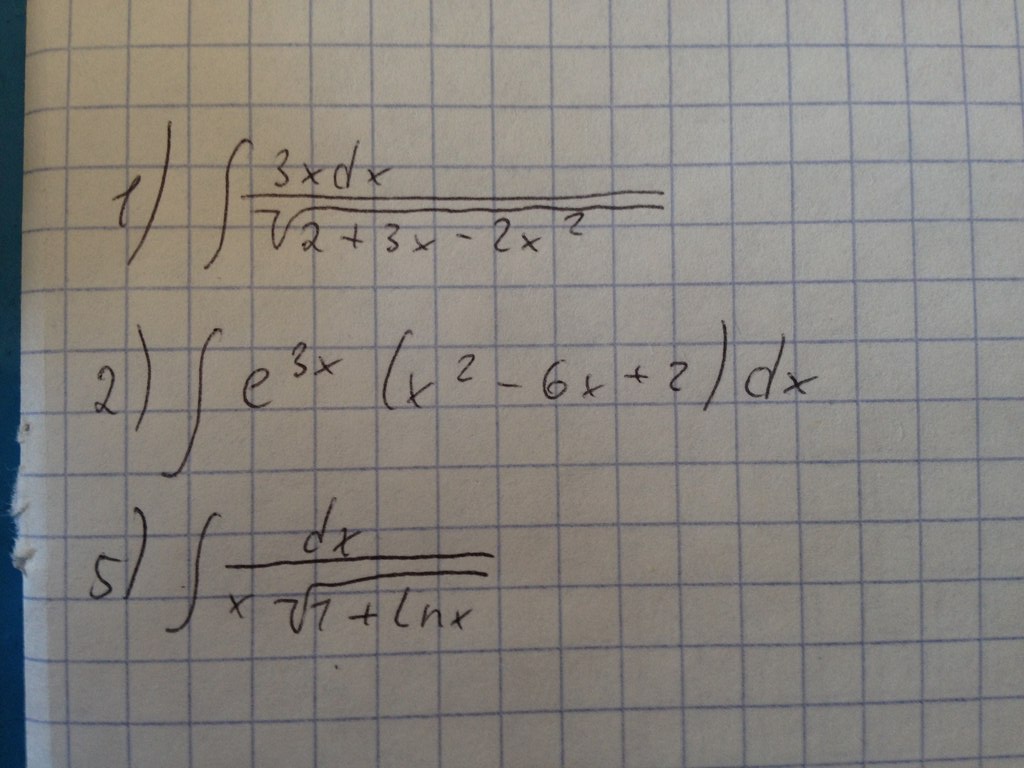 1) ∫ 3xdx / √(2 + 3x - 2x²)
2) ∫ e^(3x) (x² - 6x + 2) dx
5) ∫ dx / (x √(1 + lnx))